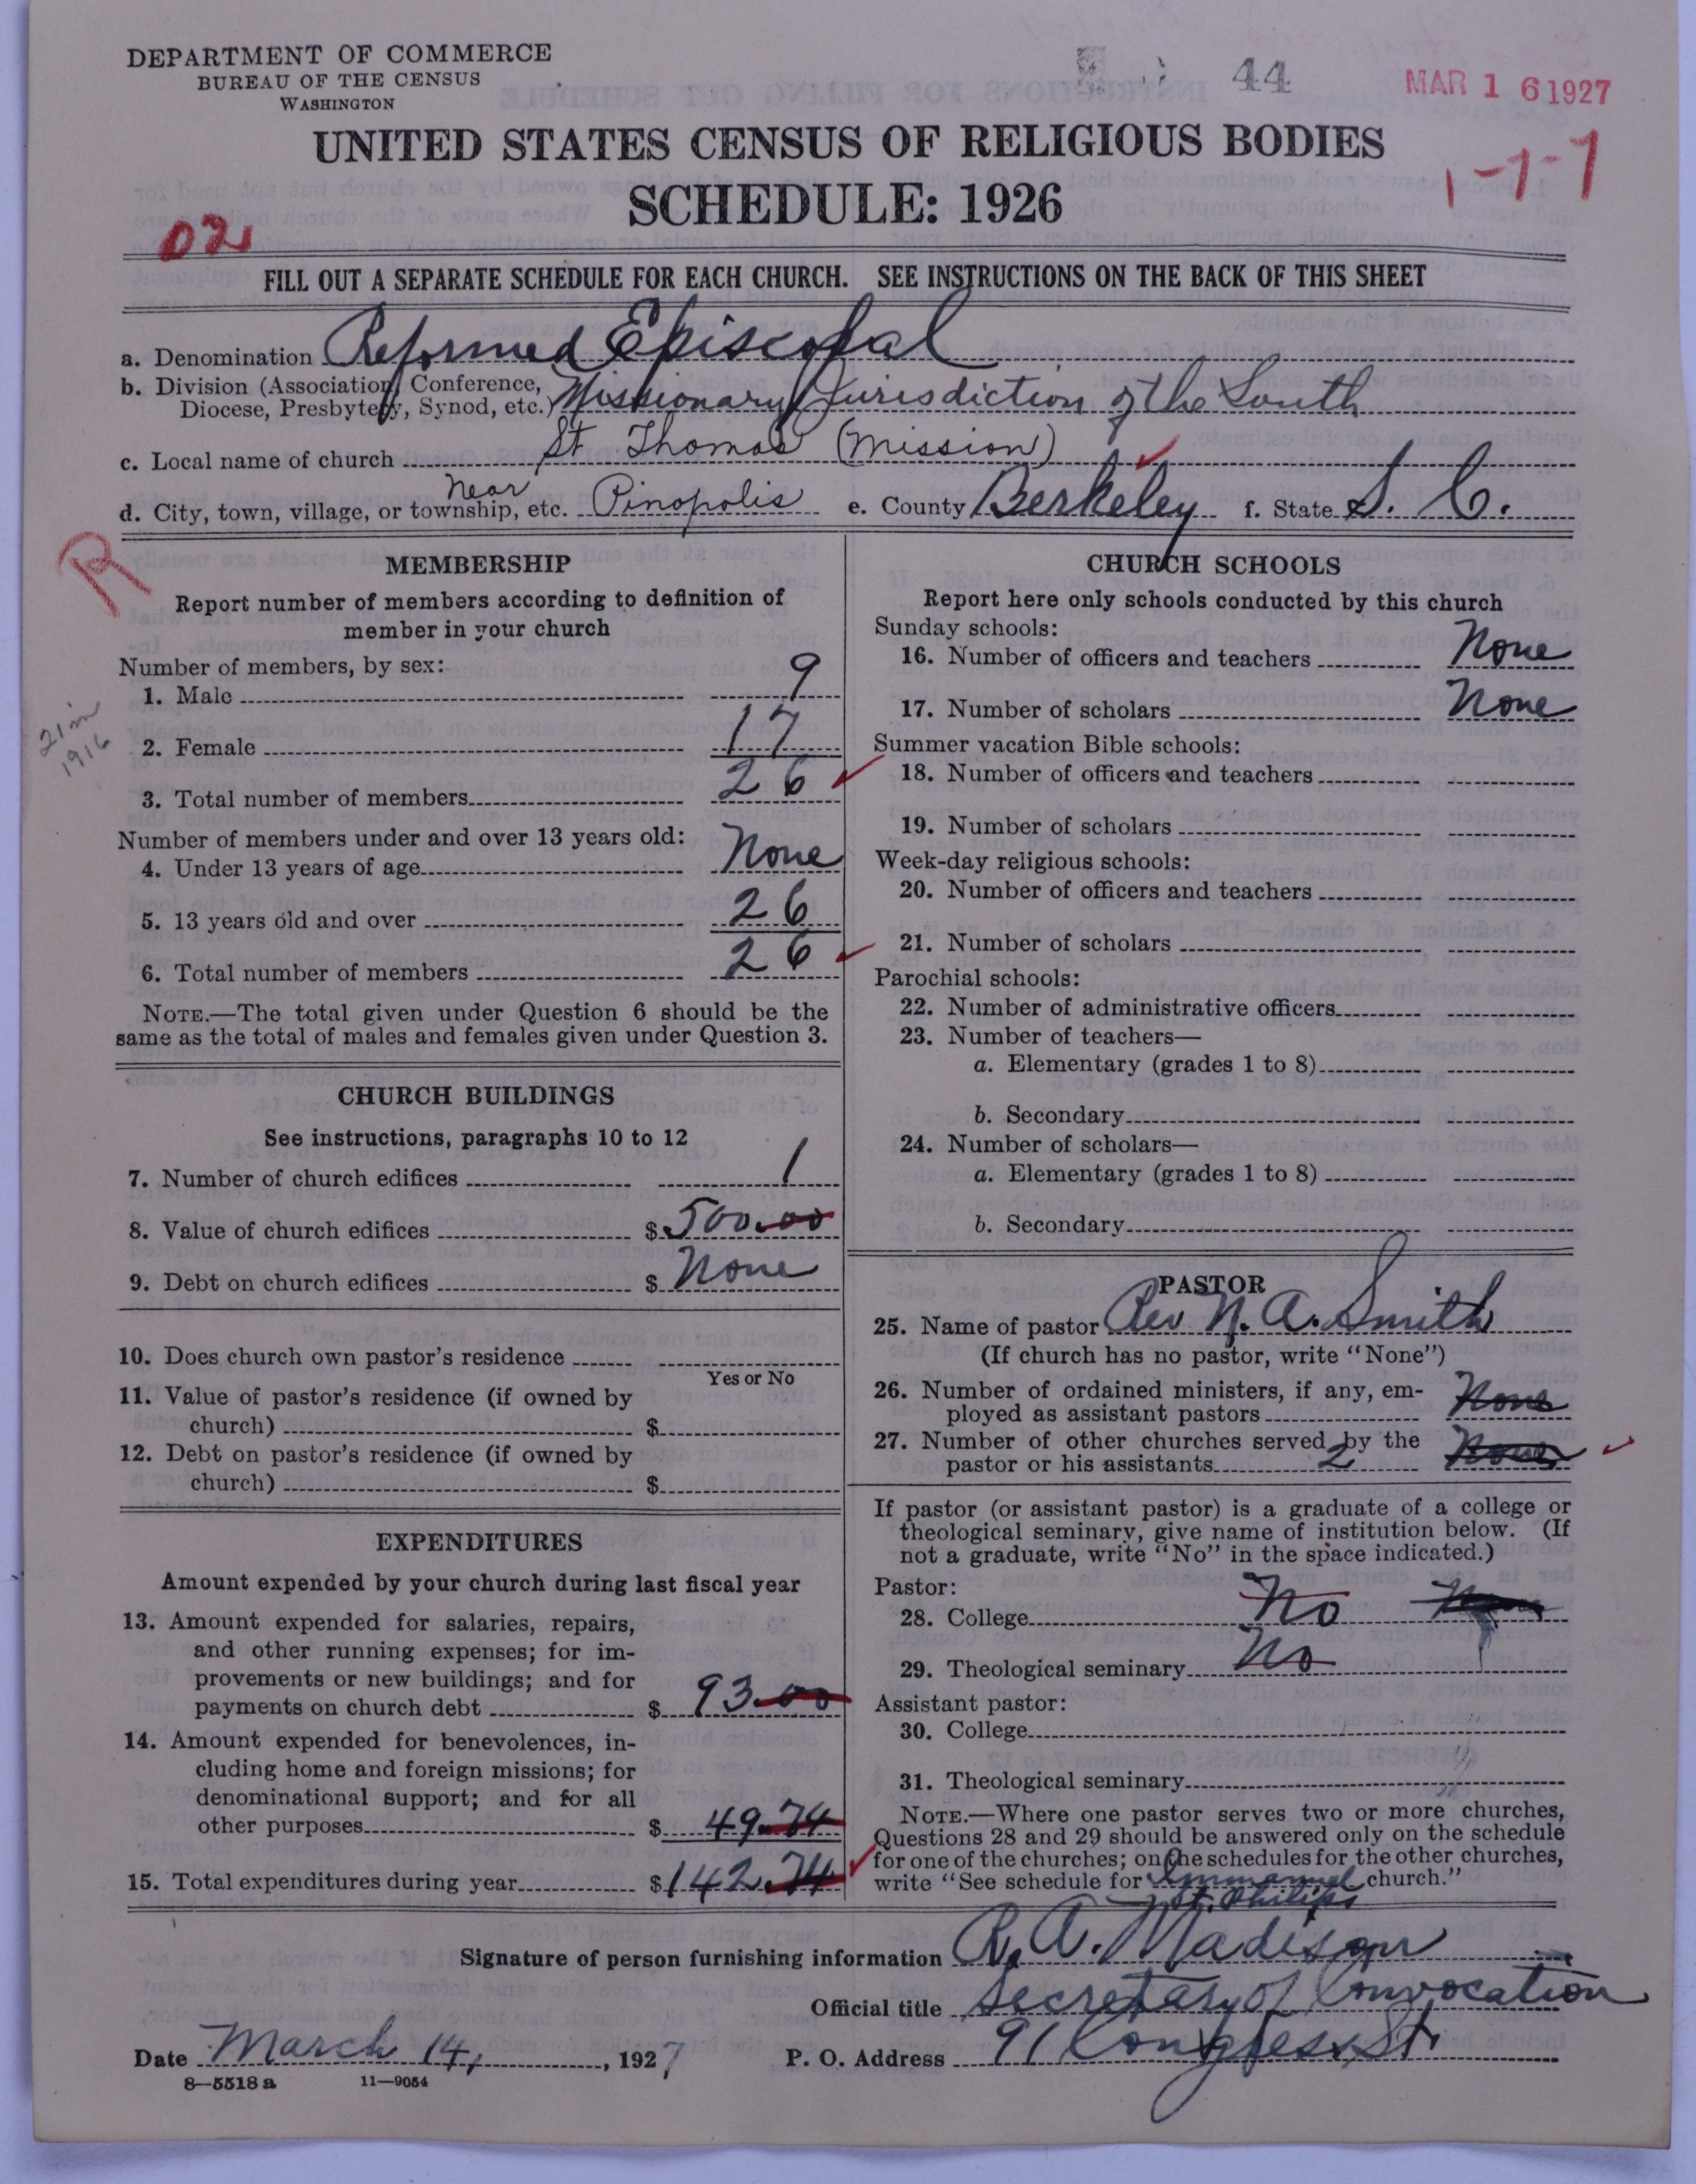 DEPARTMENT OF COMMERCE
BUREAU OF THE CENSUS
WASHINGTON
44
MAR 16 1927
UNITED STATES CENSUS OF RELIGIOUS BODIES
SCHEDULE: 1926
1-7-7
02
FILL OUT A SEPARATE SCHEDULE FOR EACH CHURCH. SEE INSTRUCTIONS ON THE BACK OF THIS SHEET
a. Denomination Reformed Episcopal
b. Division (Association, Conference, Diocese, Presbytery, Synod, etc.) Missionary Jurisdiction of the South
c. Local name of church St. Thomas (Mission)
d. City, town, village, or township, etc. near Pinopolis e. County Berkeley f. State S. C.
R
MEMBERSHIP
Report number of members according to definition of
member in your church
Number of members, by sex:
1. Male 9
2. Female 17
21 in
1916
3. Total number of members 26
Number of members under and over 13 years old:
4. Under 13 years of age None
5. 13 years old and over 26
6. Total number of members 26
NOTE.—The total given under Question 6 should be the
same as the total of males and females given under Question 3.
CHURCH BUILDINGS
See instructions, paragraphs 10 to 12
7. Number of church edifices 1
8. Value of church edifices $ 500.00
9. Debt on church edifices $ None
10. Does church own pastor's residence
Yes or No
11. Value of pastor's residence (if owned by
church) $
12. Debt on pastor's residence (if owned by
church) $
EXPENDITURES
Amount expended by your church during last fiscal year
13. Amount expended for salaries, repairs,
and other running expenses; for im-
provements or new buildings; and for
payments on church debt $ 93.00
14. Amount expended for benevolences, in-
cluding home and foreign missions; for
denominational support; and for all
other purposes $ 49.74
15. Total expenditures during year $ 142.74
CHURCH SCHOOLS
Report here only schools conducted by this church
Sunday schools:
16. Number of officers and teachers None
17. Number of scholars None
Summer vacation Bible schools:
18. Number of officers and teachers
19. Number of scholars
Week-day religious schools:
20. Number of officers and teachers
21. Number of scholars
Parochial schools:
22. Number of administrative officers
23. Number of teachers—
a. Elementary (grades 1 to 8)
b. Secondary
24. Number of scholars—
a. Elementary (grades 1 to 8)
b. Secondary
PASTOR
25. Name of pastor Rev N. A. Smith
(If church has no pastor, write "None")
26. Number of ordained ministers, if any, em-
ployed as assistant pastors None
27. Number of other churches served by the
pastor or his assistants 2 None
If pastor (or assistant pastor) is a graduate of a college or
theological seminary, give name of institution below. (If
not a graduate, write "No" in the space indicated.)
Pastor:
28. College No
29. Theological seminary No
Assistant pastor:
30. College
31. Theological seminary
NOTE.—Where one pastor serves two or more churches,
Questions 28 and 29 should be answered only on the schedule
for one of the churches; on the schedules for the other churches,
write "See schedule for Immanuel church."
St. Philips
Signature of person furnishing information R. A. Madison
Official title Secretary of Convocation
Date March 14, 1927 P. O. Address 91 Congress St.
8—5518 a 11—9054